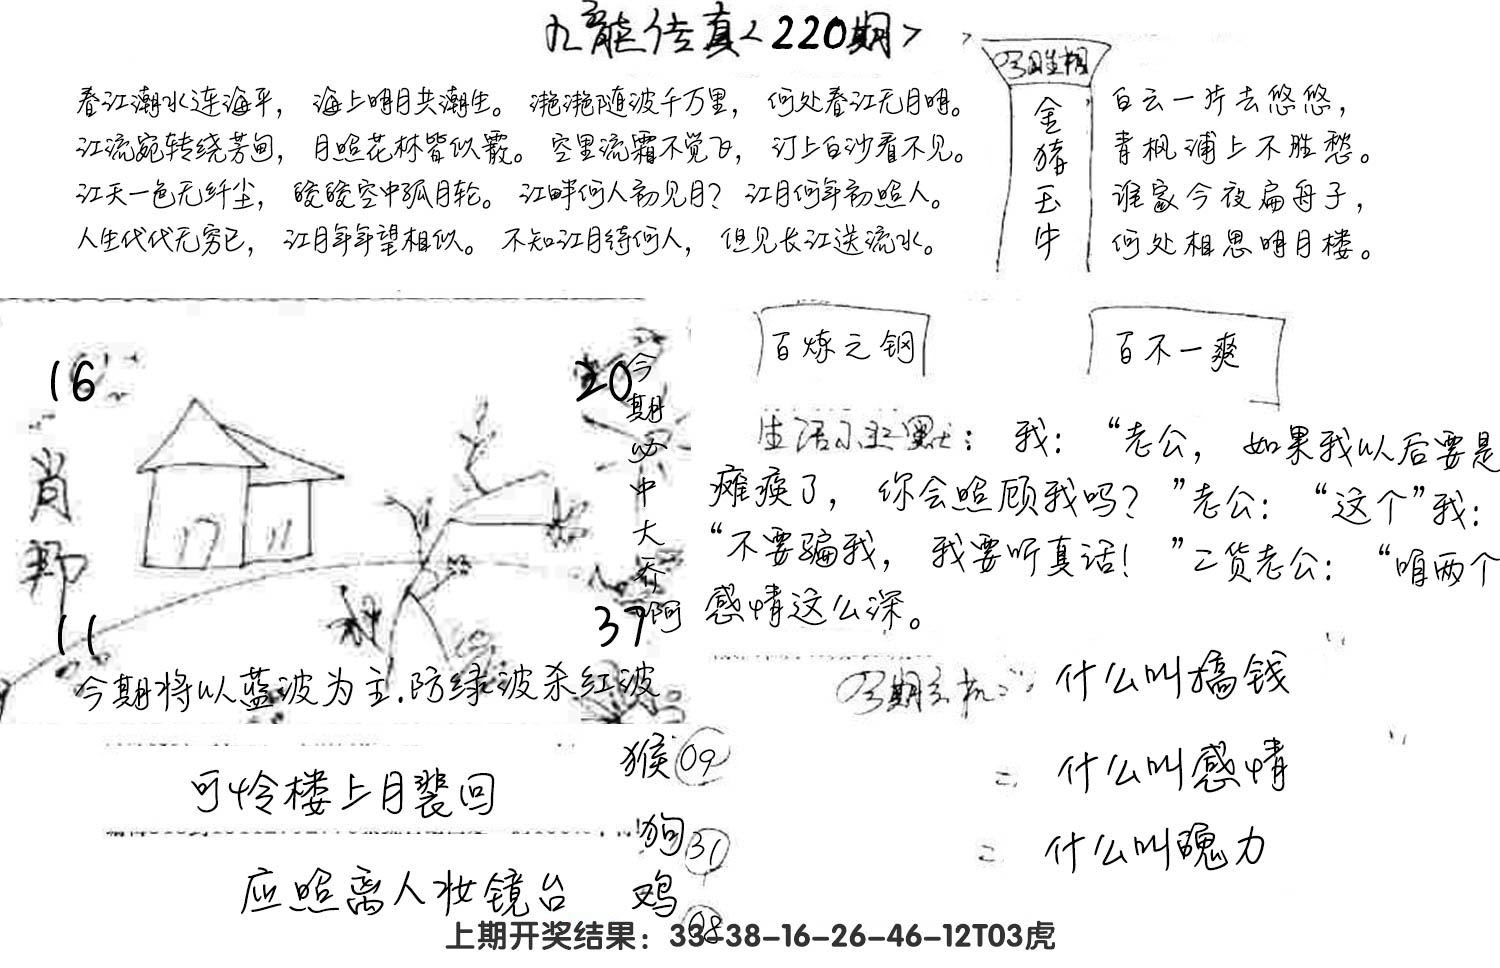 九龍传真<220期>
春江潮水连海平，海上明月共潮生。滟滟随波千万里，何处春江无月明。
江流宛转绕芳甸，月照花林皆似霰。空里流霜不觉飞，汀上白沙看不见。
江天一色无纤尘，皎皎空中孤月轮。江畔何人初见月？江月何年初照人。
人生代代无穷已，江月年年望相似。不知江月待何人，但见长江送流水。
金猪玉牛
白云一片去悠悠，
青枫浦上不胜愁。
谁家今夜扁舟子，
何处相思明月楼。
16
20
肖
11
37
今期必中大乔啊
今期将以蓝波为主.防绿波杀红波
百炼之钢
百不一爽
生活小幽默：我：“老公，如果我以后要是
瘫痪了，你会照顾我吗？”老公：“这个”我：
“不要骗我，我要听真话！”二货老公：“咱两个
感情这么深。
什么叫搞钱
二 什么叫感情
二 什么叫魄力
可怜楼上月裴回
应照离人妆镜台
猴 09
狗 31
鸡 08
上期开奖结果：33-38-16-26-46-12T03虎